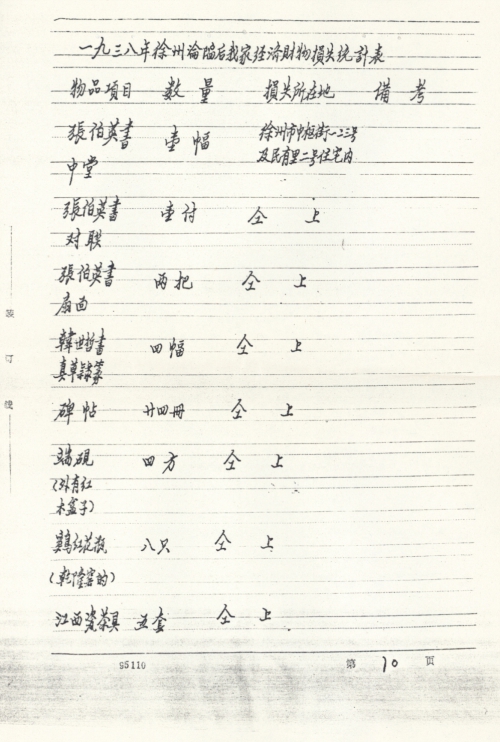 一九三八年徐州淪陷后我家经済財物損失統計表
物品項目 数量 損失所在地 備考
張伯英書 壹幅 徐州市中枢街一二三号
中堂 及民有里二号住宅内
張伯英書 壹付 仝上
对联
張伯英書 两把 仝上
扇面
韓世哲書 四幅 仝上
真草隸篆
碑帖 廿四冊 仝上
端硯 四方 仝上
(外有红
木盒子)
红花瓶 八只 仝上
(乾隆窑的)
江西瓷茶具 五套 仝上
装
订
线
95110 第 10 页